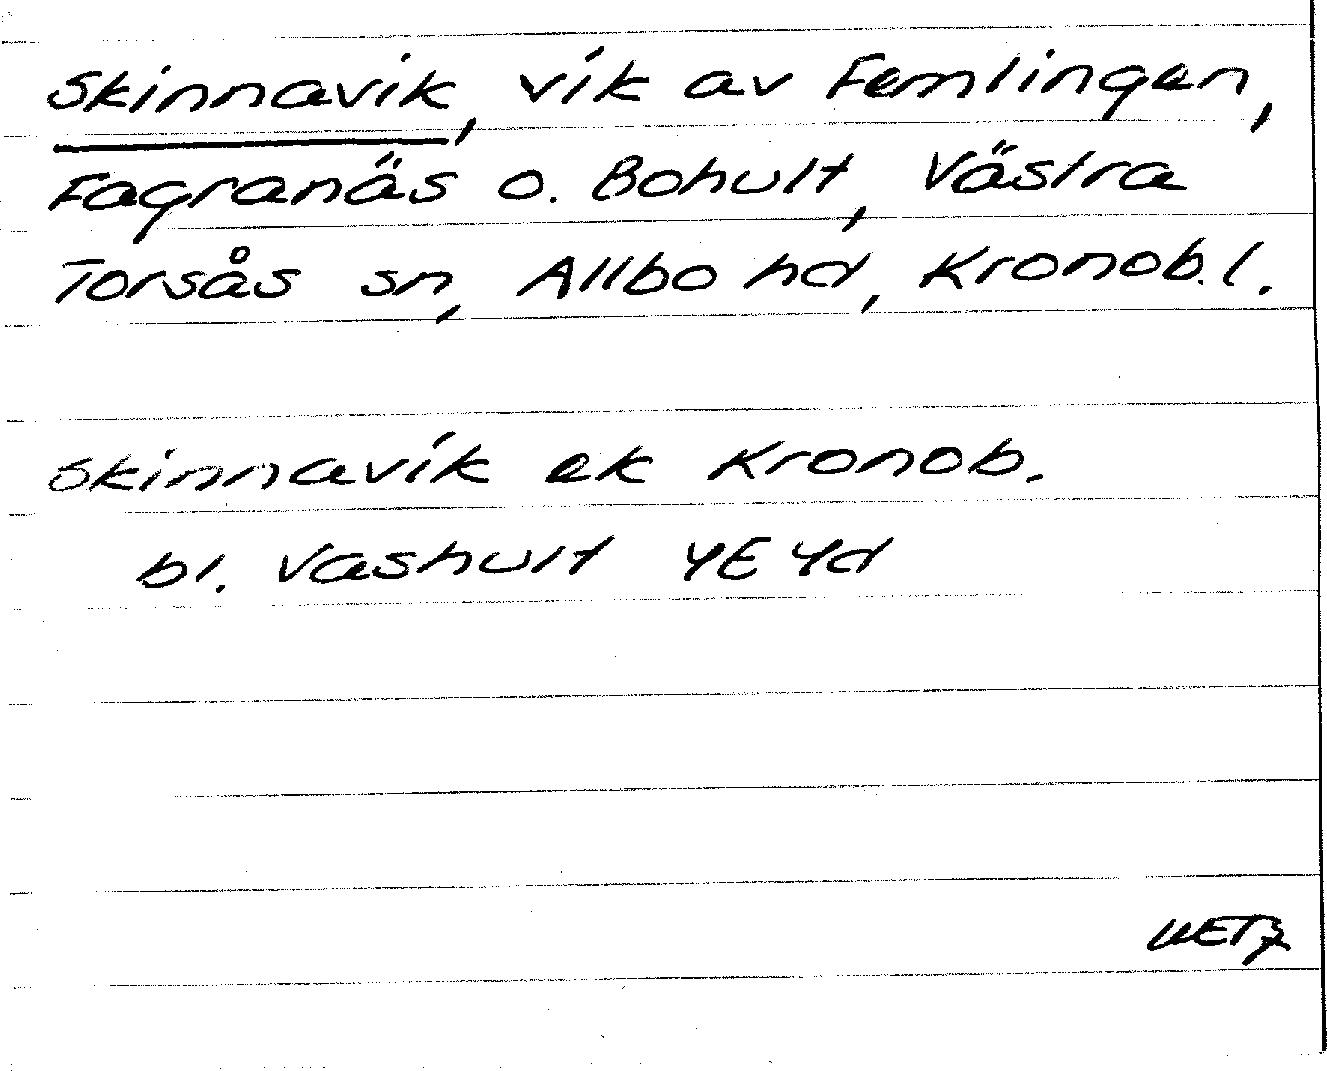 Skinnavik, vik av Femlingen,
Fagranäs o. Bohult, Västra
Torsås sn, Allbo hd, Kronob. l.
Skinnavik ek Kronob.
bl. Vashult 4E 4d